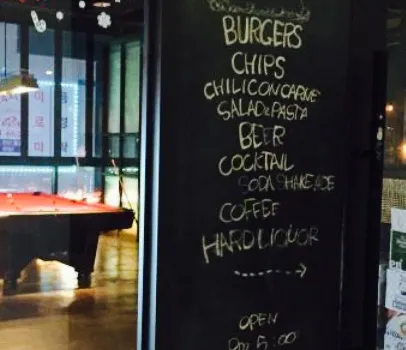 BURGERS
CHIPS
CHILICONCARNE
SALAD&PASTA
BEER
COCKTAIL
SODA SHAKE,ADE
COFFEE
HARD LIQUOR
OPEN
PM 5:00